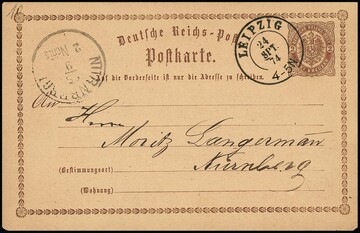 Deutsche Reichs-Post
Postkarte.
Auf die Vorderseite ist nur die Adresse zu schreiben.
LEIPZIG
24
SPT.
74
4-5N
NÜRNBERG
An Herrn
Moritz Langermann
Nürnberg
(Bestimmungsort)
(Wohnung)